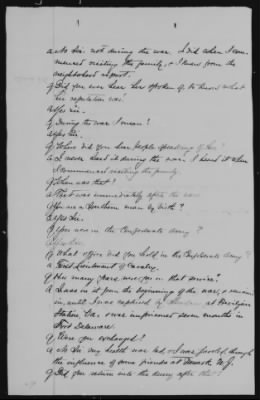 a No Sir not during the war. I did when I com-
menced visiting the family, & I knew from the
neighborhood report.
q Did you ever hear her spoken of, to know what
her reputation was.
a Yes Sir.
q During the war I mean?
a Yes Sir.
q When did you hear people speaking of her?
a I never heard it during the war. I heard it when
I commenced visiting the family.
q When was that?
a That was immediately after the war
q You are a Southern man by birth?
a Yes Sir.
q You were in the Confederate Army?
a Yes Sir.
q What office did you hold in the Confederate Army?
a First Lieutenant of Cavalry.
q How many years were you in that service?
a I was in it from the beginning of the war, & remained
in, until I was captured by at
Station, Va. & was imprisoned seven months in
Fort Delaware.
q Were you exchanged?
a No Sir my health was bad, & I was paroled, through
the influence of some friends at Newark N.J.
q Did you return into the Army after that?